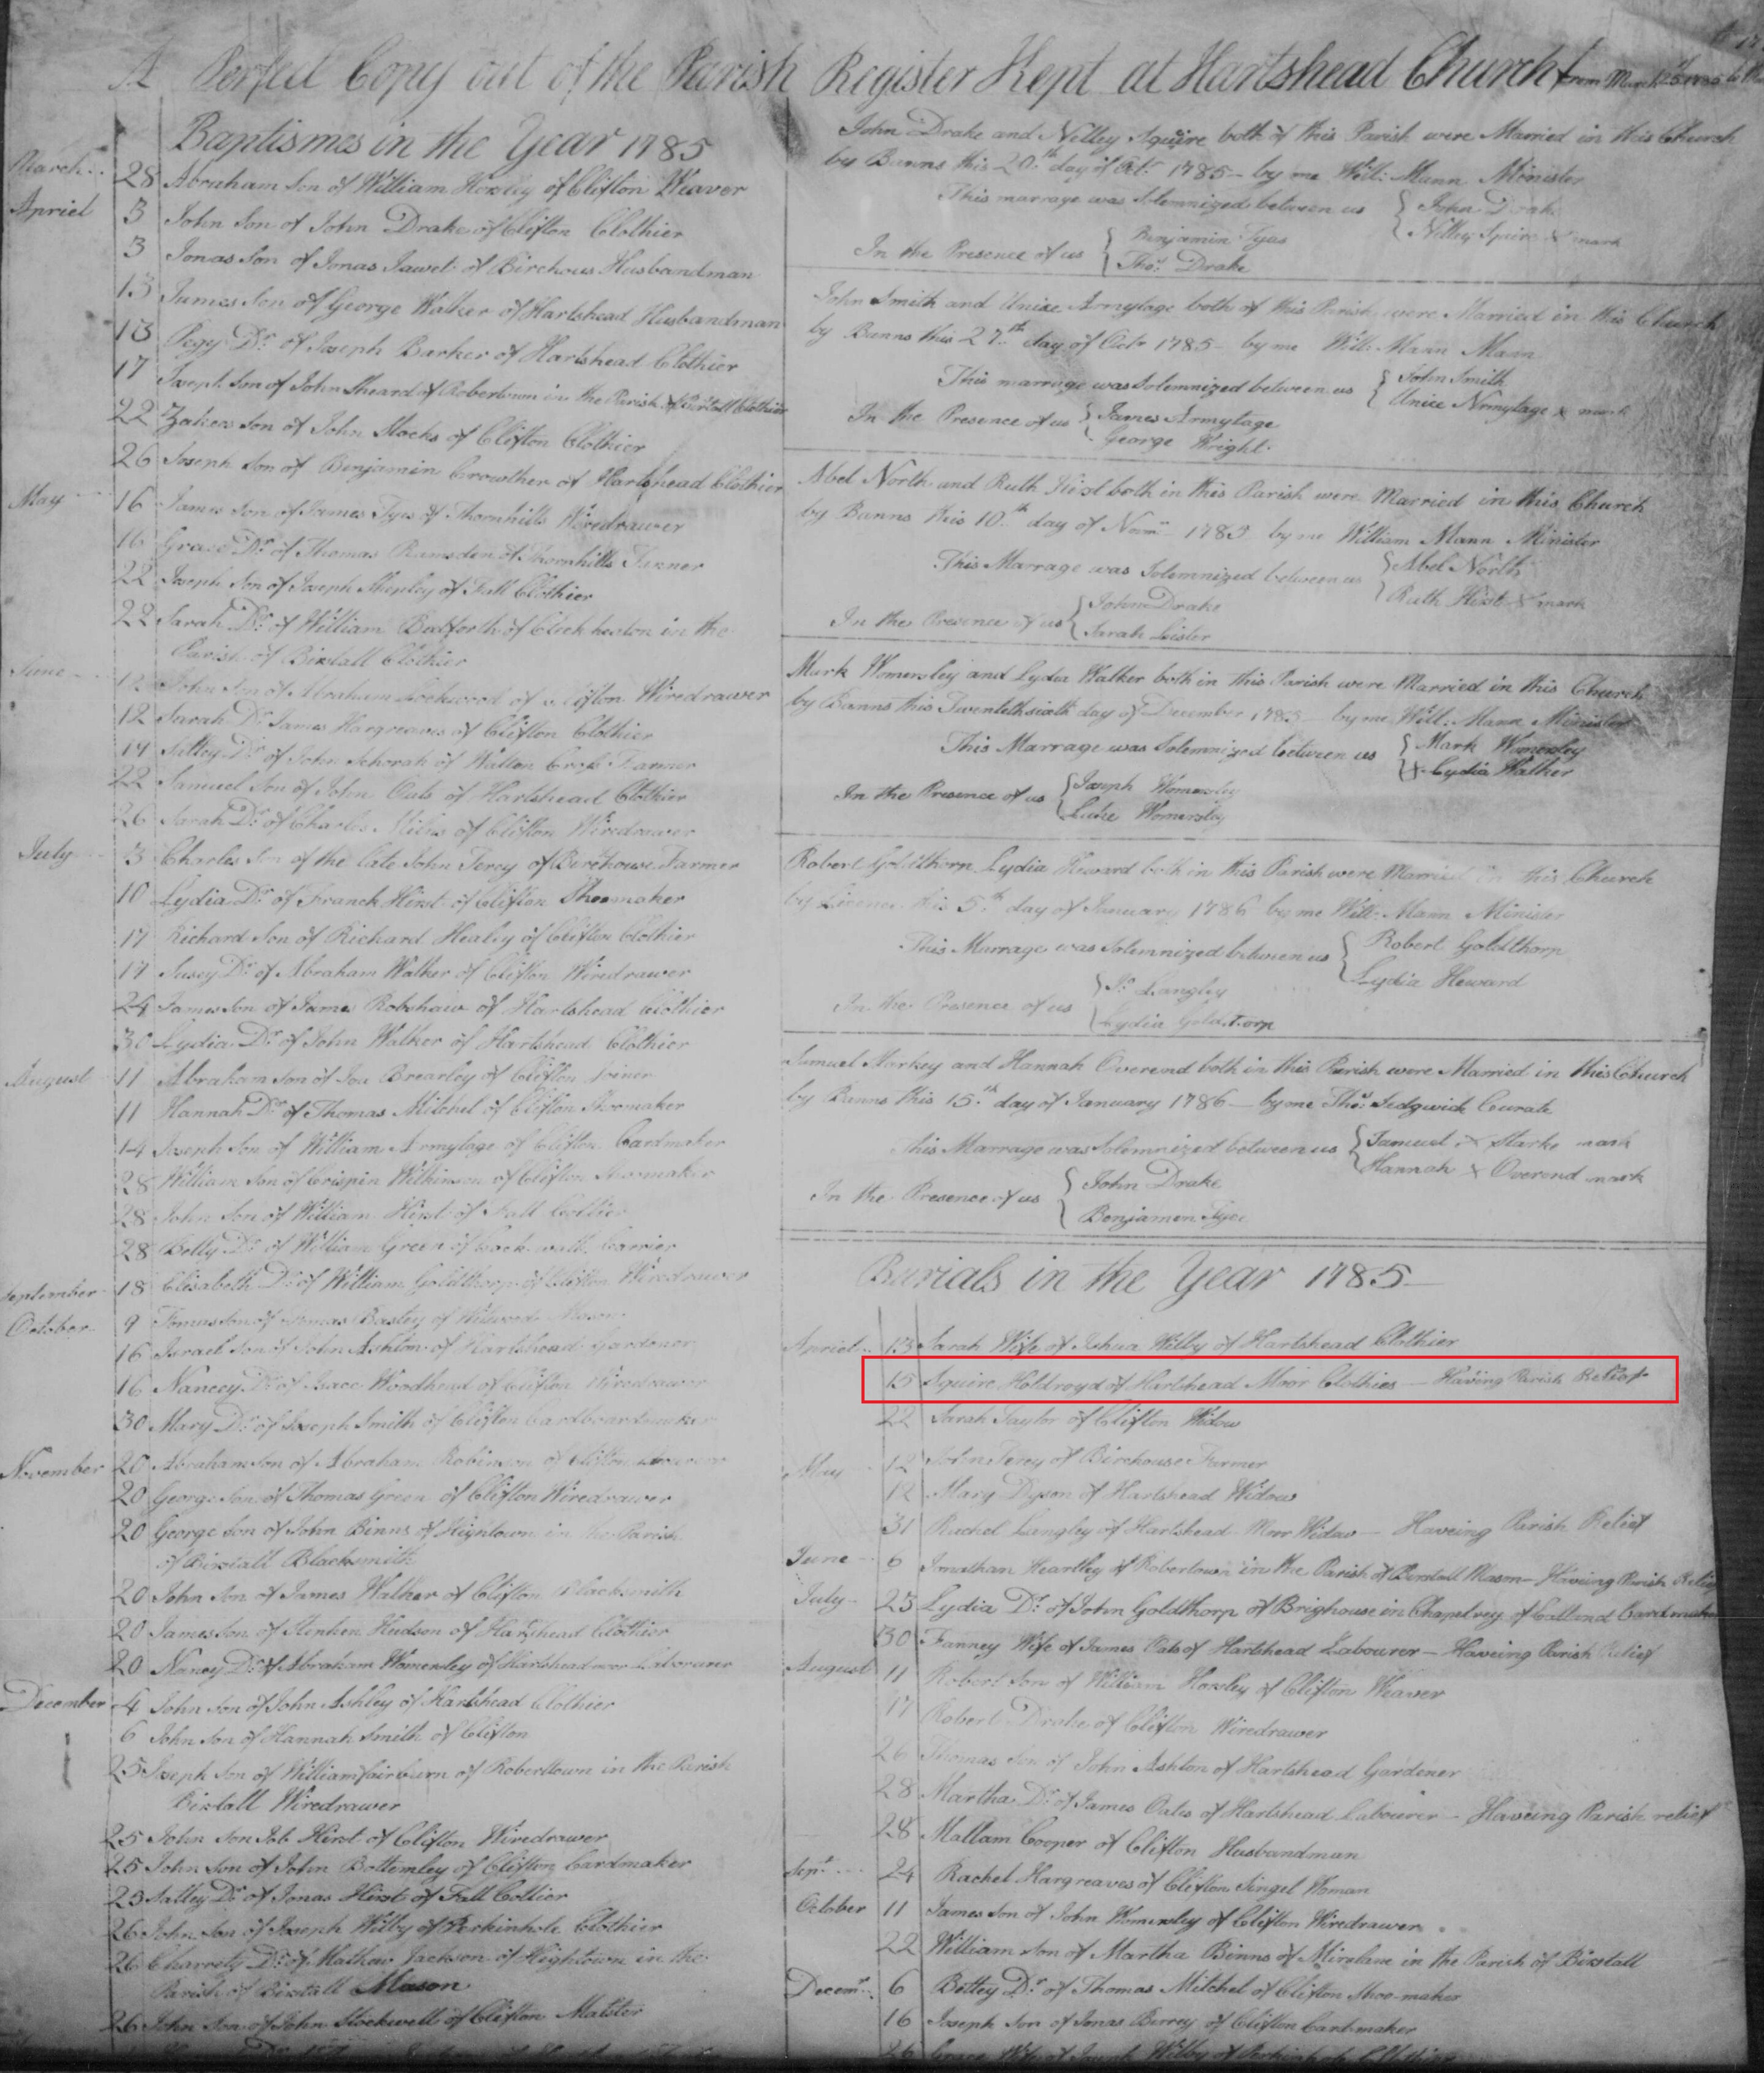 A Perfect Copy out of the Parish Register Kept at Hartshead Church from March
Baptismes in the Year 1785
March 28 Abraham Son of William Horsley of Clifton Weaver
Apriel 3 John Son of John Drake of Clifton Clothier
3 Jonas Son of Jonas Jawet of Birchous Husbandman
13 James Son of George Walker of Hartshead Husbandman
13 Pegy Dr. of Joseph Barker of Hartshead Clothier
17 Joseph Son of John Sheard of Robertown in the Parish of Birstall Clothier
22 Son of John Stocks of Clifton Clothier
26 Joseph Son of Benjamin Crowther of Hartshead Clothier
May 16 James Son of James Tyas of Thornhills Wiredrawer
16 Grace Dr. of Thomas Ramsden of Thornhills Tanner
22 Joseph Son of Joseph Shepley of Fall Clothier
22 Sarah Dr. of William Bedforth of Cleckheaton in the
Parish of Birstall Clothier
June 12 John Son of Abraham Lockwood of Clifton Wiredrawer
12 Sarah Dr. James Hargreaves of Clifton Clothier
19 Dr. of John Schorah of Walton Cross Farmer
22 Samuel Son of John Oats of Hartshead Clothier
26 Sarah Dr. of Charles of Clifton Wiredrawer
July 3 Charles Son of the late John Terey of Birchouse Farmer
10 Lydia Dr. of Franck Hirst of Clifton Shoemaker
17 Richard Son of Richard Healey of Clifton Clothier
17 Susey Dr. of Abraham Walker of Clifton Wiredrawer
24 James Son of James Robshaw of Hartshead Clothier
30 Lydia Dr. of John Walker of Hartshead Clothier
August 11 Abraham Son of Brearley of Clifton Joiner
11 Hannah Dr. of Thomas Mitchel of Clifton Shoomaker
14 Joseph Son of William Armytage of Clifton Cardmaker
28 William Son of Crispin Wilkinson of Clifton Shoomaker
28 John Son of William Hirst of Fall Collier
28 Betty Dr. of William Green of Carrier
September 18 Elisabeth Dr. of William Goldthorp of Clifton Wiredrawer
October 9 Son of of Mason
16 Israel Son of John Ashton of Hartshead Gardener
16 Nancey Dr. of Isacc Woodhead of Clifton Wiredrawer
30 Mary Dr. of Joseph Smith of Clifton Cardboardmaker
November 20 Abraham Son of Abraham Robinson of Clifton
20 George Son of Thomas Green of Clifton Wiredrawer
20 George Son of John Binns of Hightown in the Parish
of Birstall Blacksmith
20 John Son of James Walker of Clifton Blacksmith
20 James Son of Hudson of Hartshead Clothier
20 Nancy Dr. of Abraham Womersley of Hartshead moor Labourer
December 4 John Son of John Ashley of Hartshead Clothier
6 John Son of Hannah Smith of Clifton
25 Joseph Son of William fairburn of Roberttown in the Parish
Birstall Wiredrawer
25 John Son Job Hirst of Clifton Wiredrawer
25 John Son of John Bottomley of Clifton Cardmaker
25 Salley Dr. of Jonas Hirst of Fall Collier
26 John Son of Joseph Wilby of Perkinhole Clothier
26 Dr. of Mathew Jackson of Hightown in the
Parish of Birstall Mason
26 John Son of John Stockwell of Clifton Malster
John Drake and Nelley Squire both of this Parish were Married in this Church
by Banns this 20.th day of Oct. 1785 - by me Will: Mann Minister
This marrage was Solemnized between us { John Drake
{ Nelley Squire X mark
In the Presence of us { Benjamin Tyas
{ Thos. Drake
John Smith and Unice Armytage both of this Parish were Married in this Church
by Banns this 27.th day of Octr 1785 - by me Will: Mann Mann
This marrage was Solemnized between us { John Smith
Unice Armytage X mark
In the Presence of us { James Armytage
George Wright.
Abel North and Ruth Hirst both in this Parish were Married in this Church
by Banns this 10.th day of Novm. 1785 by me William Mann Minister
This Marrage was Solemnized between us { Abel North
{ Ruth Hirst X mark
In the Presence of us { John Drake
{ Sarah Lister
Mark Womersley and Lydia Walker both in this Parish were Married in this Church
by Banns this Twentethsixth day of December 1785 - by me Will: Mann Minister
This Marrage was Solemnized between us { Mark Womersley
{ X Lydia Walker
In the Presence of us { Joseph Womersley
{ Luke Womersley
Robert Goldthorp Lydia Heward both in this Parish were Married in this Church
by Licence this 5.th day of January 1786 by me Will: Mann Minister
This Marrage was Solemnized between us { Robert Goldthorp
{ Lydia Heward
In the Presence of us { Jo. Langley
{ Lydia Goldthorp
Samuel Starkey and Hannah Overend both in this Parish were Married in this Church
by Banns this 15.th day of January 1786 - by me Thos. Sedgwick Curate
This Marrage was Solemnized between us { Samuel X Starke mark
{ Hannah X Overend mark
In the Presence of us { John Drake
{ Benjamen Tyas
Burials in the Year 1785
Apriel 13 Sarah Wife of Joshua Wilby of Hartshead Clothier
15 Squire Holdroyd of Hartshead Moor Clothier - Having Parish Relief
22 Sarah Taylor of Clifton Widow
May 12 John Terey of Birchouse Farmer
12 Mary Dyson of Hartshead Widow
31 Rachel Langley of Hartshead Moor Widow - Haveing Parish Relief
June 6 Jonathan Heartley of Robertown in the Parish of Birstall Mason - Haveing Parish Relief
July 23 Lydia Dr. of John Goldthorp of Brighouse in Chapelrey of Ealland Cardmaker
30 Fanney Wife of James Oats of Hartshead Labourer - Haveing Parish Relief
August 11 Robert Son of William Horsley of Clifton Weaver
17 Robert Drake of Clifton Wiredrawer
26 Thomas Son of John Ashton of Hartshead Gardener
28 Martha Dr. of James Oates of Hartshead Labourer - Haveing Parish relief
28 Mallam Cooper of Clifton Husbandman
Sept. 24 Rachel Hargreaves of Clifton Singel Woman
October 11 James Son of John Womersley of Clifton Wiredrawer
22 William Son of Martha Binns of in the Parish of Birstall
Decemr. 6 Bettey Dr. of Thomas Mitchel of Clifton Shoo-maker
16 Joseph Son of Jonas Berrey of Clifton Card-maker
26 Grace Wife of Joseph Wilby of Perkinhole Clothier